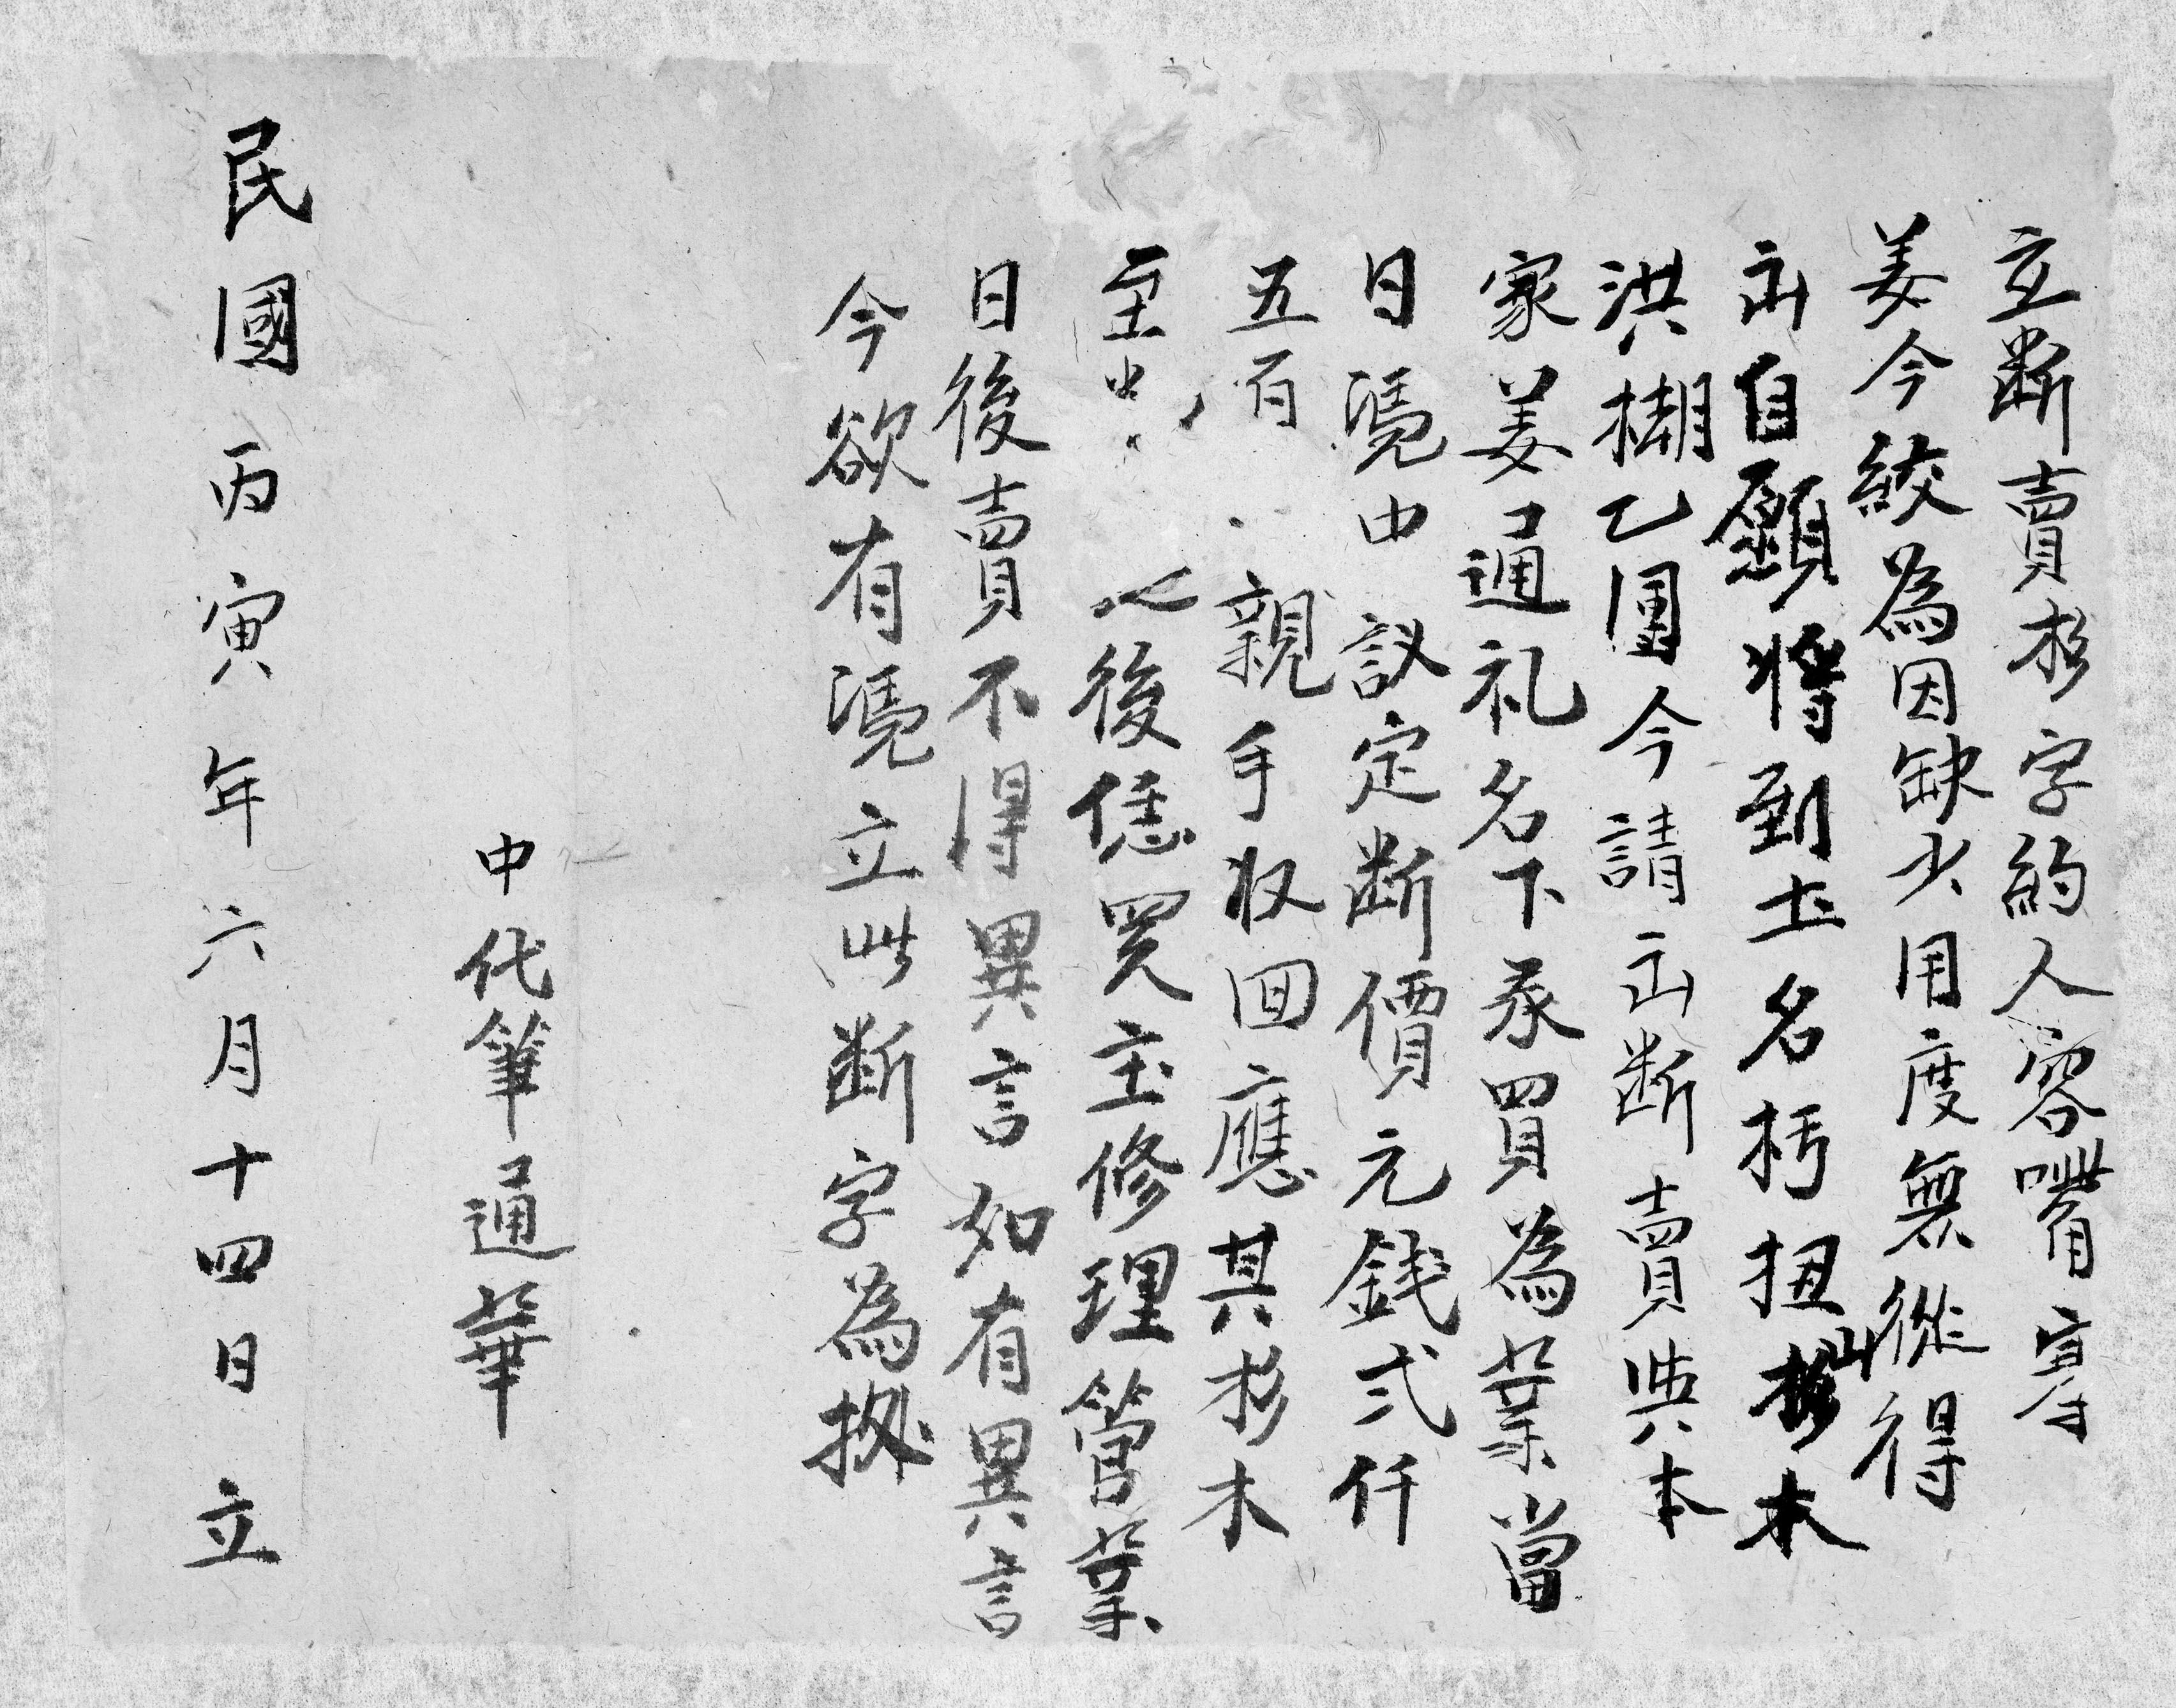 立断賣杉字約人容嘴寨
姜今絞為因缺少用度無從得
出自願將到土名杇扭山杉木
洪楜乙團今請出断賣與本
家姜通礼名下承買為業當
日憑中議定断價元銭弍仟
五百 親手收回應其杉木
至 後恁買主修理管業
日後賣不得異言如有異言
今欲有憑立此断字為據
中代筆通華
民國丙寅年六月十四日 立